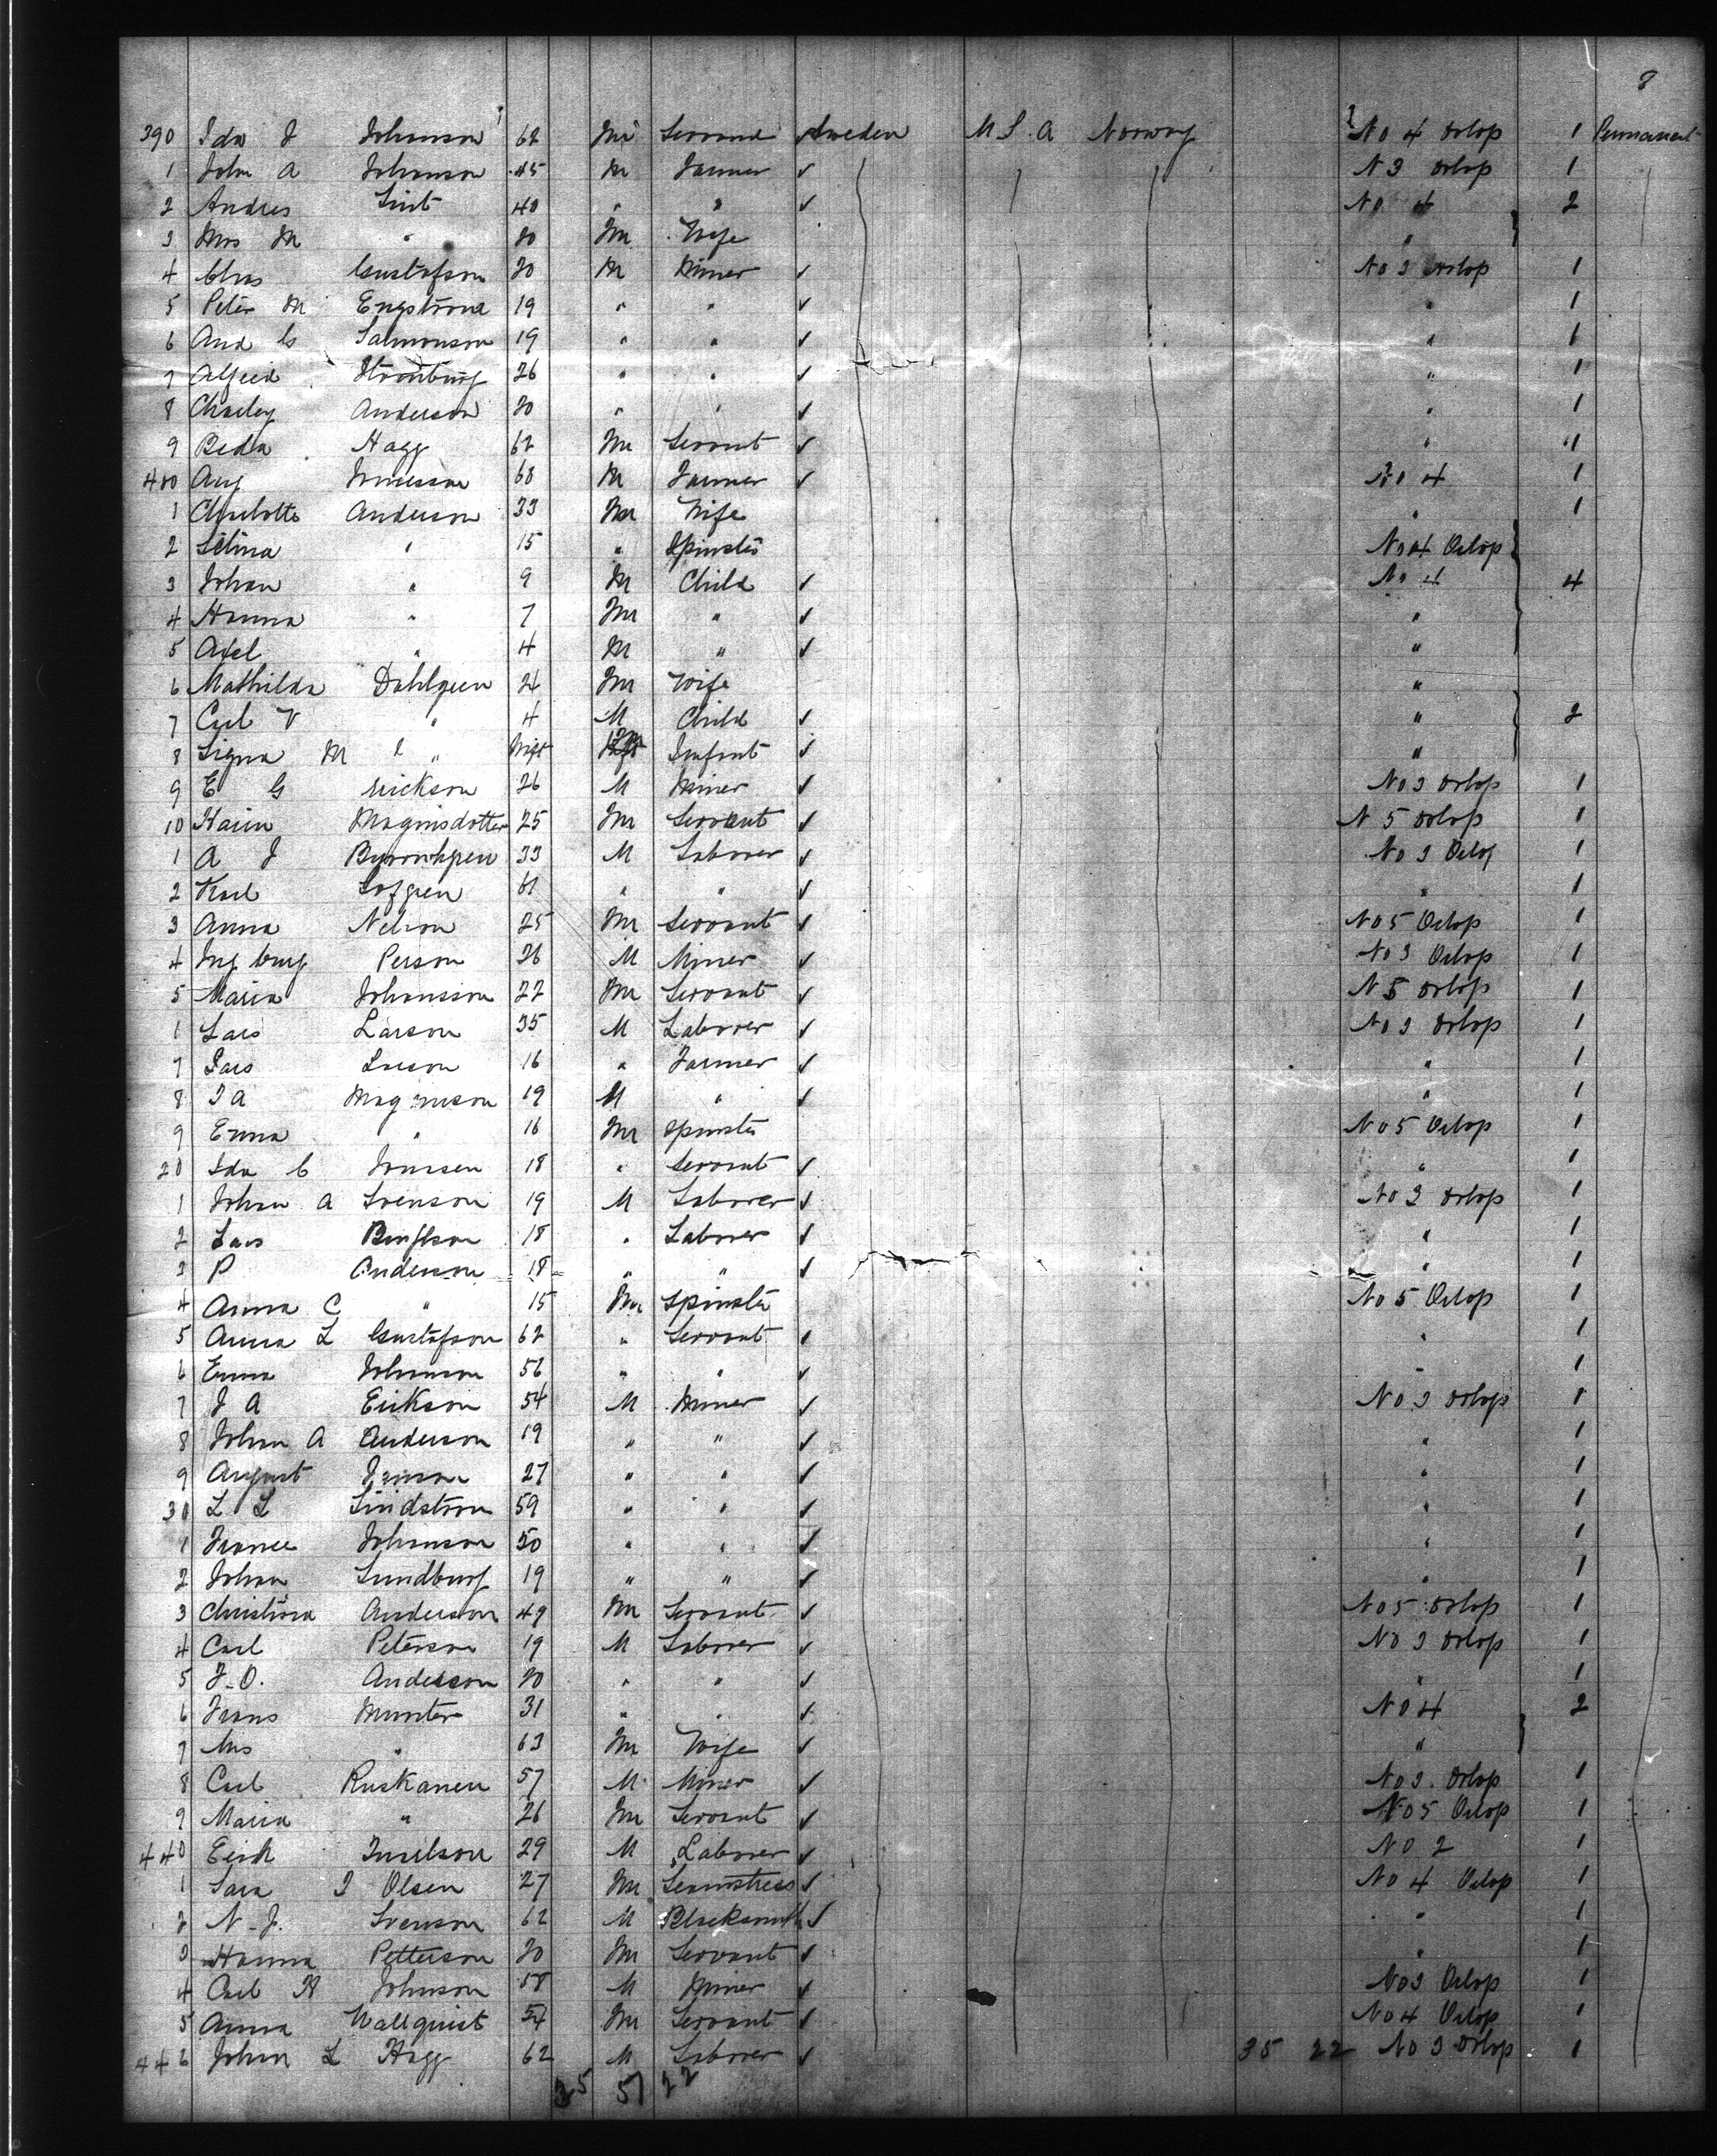 8
390 Ida J Johanson 62 Sweden U S. A Norway No 4 Orlop 1 Permanent
1 John A Johanson 45 M Farmer ✓ N 3 Orlop 1
2 Andres 40 " " ✓ No 4 2
3 Mrs M " 20 Wife "
4 Chas Gustafson 20 M Miner ✓ No 3 Orlop 1
5 Peter M Engstrom 19 " " ✓ " 1
6 And G Salmonson 19 " " ✓ " 1
7 Alfred 26 " " ✓ " 1
8 Charley Anderson 20 " " ✓ " 1
9 Beda Hagg 62 Servant ✓ " 1
400 Aug 60 M Farmer ✓ No 4 1
1 Charlotte Anderson 33 Wife " 1
2 " 15 " Spinster No 4 Orlop
3 Johan " 9 M Child ✓ No 4 4
4 Hanna " 7 " ✓ "
5 Axel " 4 M " ✓ "
6 Mathilda Dahlgren 24 Wife "
7 Carl V " 4 M Child ✓ " 2
8 Signa M " Infant ✓ "
9 E G Erickson 26 M Miner ✓ No 3 Orlop 1
10 Karin Magnisdotter 25 Servant ✓ N 5 Orlop 1
1 A J 33 M Laborer ✓ No 3 Orlop 1
2 Karl Lofgren 61 " " ✓ " 1
3 Anna Nelson 25 Servant ✓ No 5 Orlop 1
4 Person 26 M Miner ✓ No 3 Orlop 1
5 Maria Johansson 22 Servant ✓ N 5 Orlop 1
1 Lars Larson 35 M Laborer ✓ No 3 Orlop 1
7 Lars Larson 16 " Farmer ✓ " 1
8 Magnuson 19 M " ✓ " 1
9 Emma " 16 Spinster No 5 Orlop 1
20 Ida C 18 " Servant ✓ " 1
1 Johan A Svenson 19 M Laborer ✓ No 3 Orlop 1
2 Lars 18 " Laborer ✓ " 1
3 P Anderson 18 " " ✓ " 1
4 Anna C " 15 Spinster No 5 Orlop 1
5 Anna L Gustafson 62 " Servant ✓ " 1
6 Emma Johnson 56 " " ✓ " 1
7 J A Erikson 54 M Miner ✓ No 3 Orlop 1
8 Johan A Anderson 19 " " ✓ " 1
9 August 27 " " ✓ " 1
30 L L Lindstrom 59 " " ✓ " 1
1 Johnson 50 " " ✓ " 1
2 Johan Lundburg 19 " " ✓ " 1
3 Christina Anderson 49 Servant ✓ No 5 Orlop 1
4 Carl Peterson 19 M Laborer ✓ No 3 Orlop 1
5 J. O. Anderson 20 " " ✓ " 1
6 Frans Munter 31 " " ✓ No 4 2
7 Mrs " 63 Wife ✓ "
8 Carl Ruskanen 57 M Miner ✓ No 3 Orlop 1
9 Maria " 26 Servant ✓ No 5 Orlop 1
440 Erik 29 M Laborer ✓ No 2 1
1 Sara J Olsen 27 Seamstress ✓ No 4 Orlop 1
2 N. J. Svenson 62 M Blacksmith ✓ " 1
3 Hanna Petterson 20 Servant ✓ " 1
4 Carl A Johnson 58 M Miner ✓ No 3 Orlop 1
5 Anna Wallquist 54 Servant ✓ No 4 Orlop 1
446 Johan L Hagg 62 M Laborer ✓ 35 22 No 3 Orlop 1
35 57 22